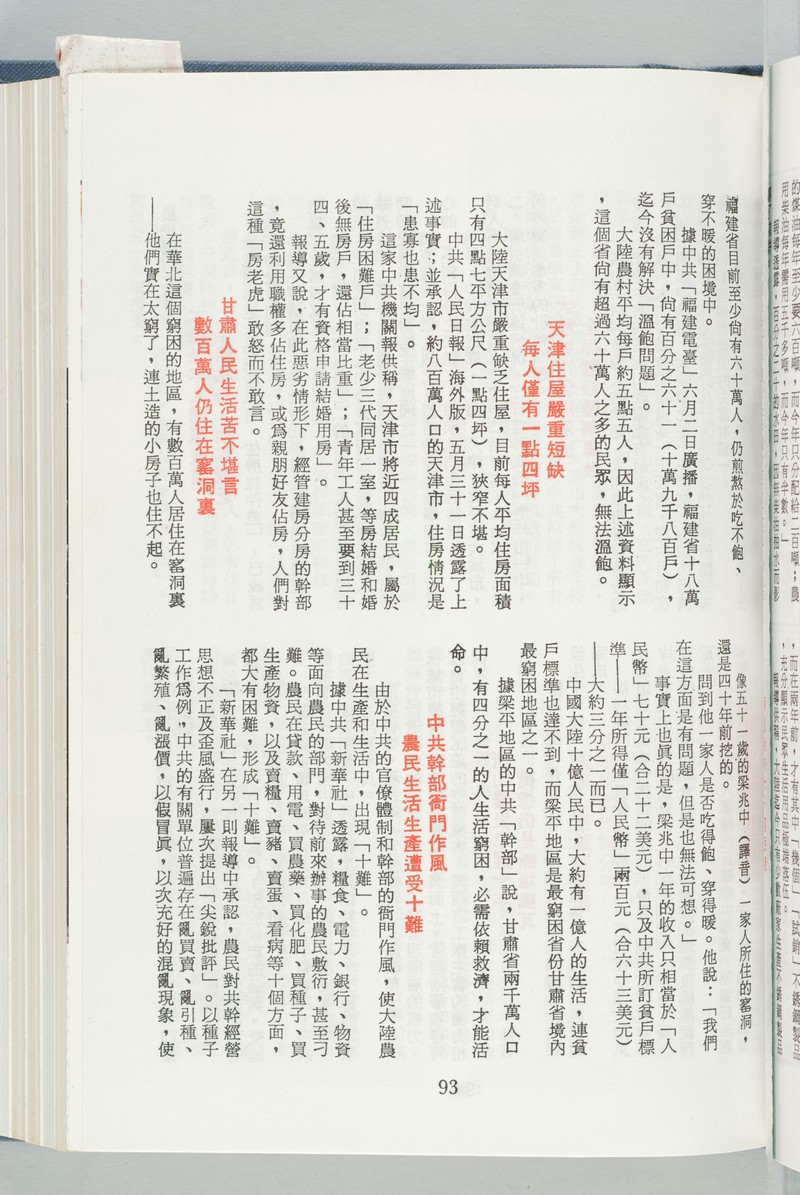 福建省目前至少尙有六十萬人，仍煎熬於吃不飽、
穿不暖的困境中。
據中共「福建電臺」六月二日廣播，福建省十八萬
戶貧困戶中，尙有百分之六十一（十萬九千八百戶），
迄今沒有解決「溫飽問題」。
大陸農村平均每戶約五點五人，因此上述資料顯示
，這個省尙有超過六十萬人之多的民眾，無法溫飽。
天津住屋嚴重短缺
每人僅有一點四坪
大陸天津市嚴重缺乏住屋，目前每人平均住房面積
只有四點七平方公尺（一點四坪），狹窄不堪。
中共「人民日報」海外版，五月三十一日透露了上
述事實；並承認，約八百萬人口的天津市，住房情況是
「患寡也患不均」。
這家中共機關報供稱，天津市將近四成居民，屬於
「住房困難戶」；「老少三代同居一室，等房結婚和婚
後無房戶，還佔相當比重」；「青年工人甚至要到三十
四、五歲，才有資格申請結婚用房」。
報導又說，在此惡劣情形下，經管建房分房的幹部
，竟還利用職權多佔住房，或爲親朋好友佔房，人們對
這種「房老虎」敢怒而不敢言。
甘肅人民生活苦不堪言
數百萬人仍住在窰洞裏
在華北這個窮困的地區，有數百萬人居住在窰洞裏
——他們實在太窮了，連土造的小房子也住不起。
像五十一歲的梁兆中（譯音）一家人所住的窰洞，
還是四十年前挖的。
問到他一家人是否吃得飽、穿得暖。他說：「我們
在這方面是有問題，但是也無法可想。」
事實上也眞的是，梁兆中一年的收入只相當於「人
民幣」七十元（合二十二美元），只及中共所訂貧戶標
準——一年所得僅「人民幣」兩百元（合六十三美元）
——大約三分之一而已。
中國大陸十億人民中，大約有一億人的生活，連貧
戶標準也達不到，而梁平地區是最窮困省份甘肅省境內
最窮困地區之一。
據梁平地區的中共「幹部」說，甘肅省兩千萬人口
中，有四分之一的人生活窮困，必需依賴救濟，才能活
命。
中共幹部衙門作風
農民生活生產遭受十難
由於中共的官僚體制和幹部的衙門作風，使大陸農
民在生產和生活中，出現「十難」。
據中共「新華社」透露，糧食、電力、銀行、物資
等面向農民的部門，對待前來辦事的農民敷衍，甚至刁
難。農民在貸款、用電、買農藥、買化肥、買種子、買
生產物資，以及賣糧、賣豬、賣蛋、看病等十個方面，
都大有困難，形成「十難」。
「新華社」在另一則報導中承認，農民對共幹經營
思想不正及歪風盛行，屢次提出「尖銳批評」。以種子
工作爲例，中共的有關單位普遍存在亂買賣、亂引種、
亂繁殖、亂漲價，以假冒眞，以次充好的混亂現象，使
93